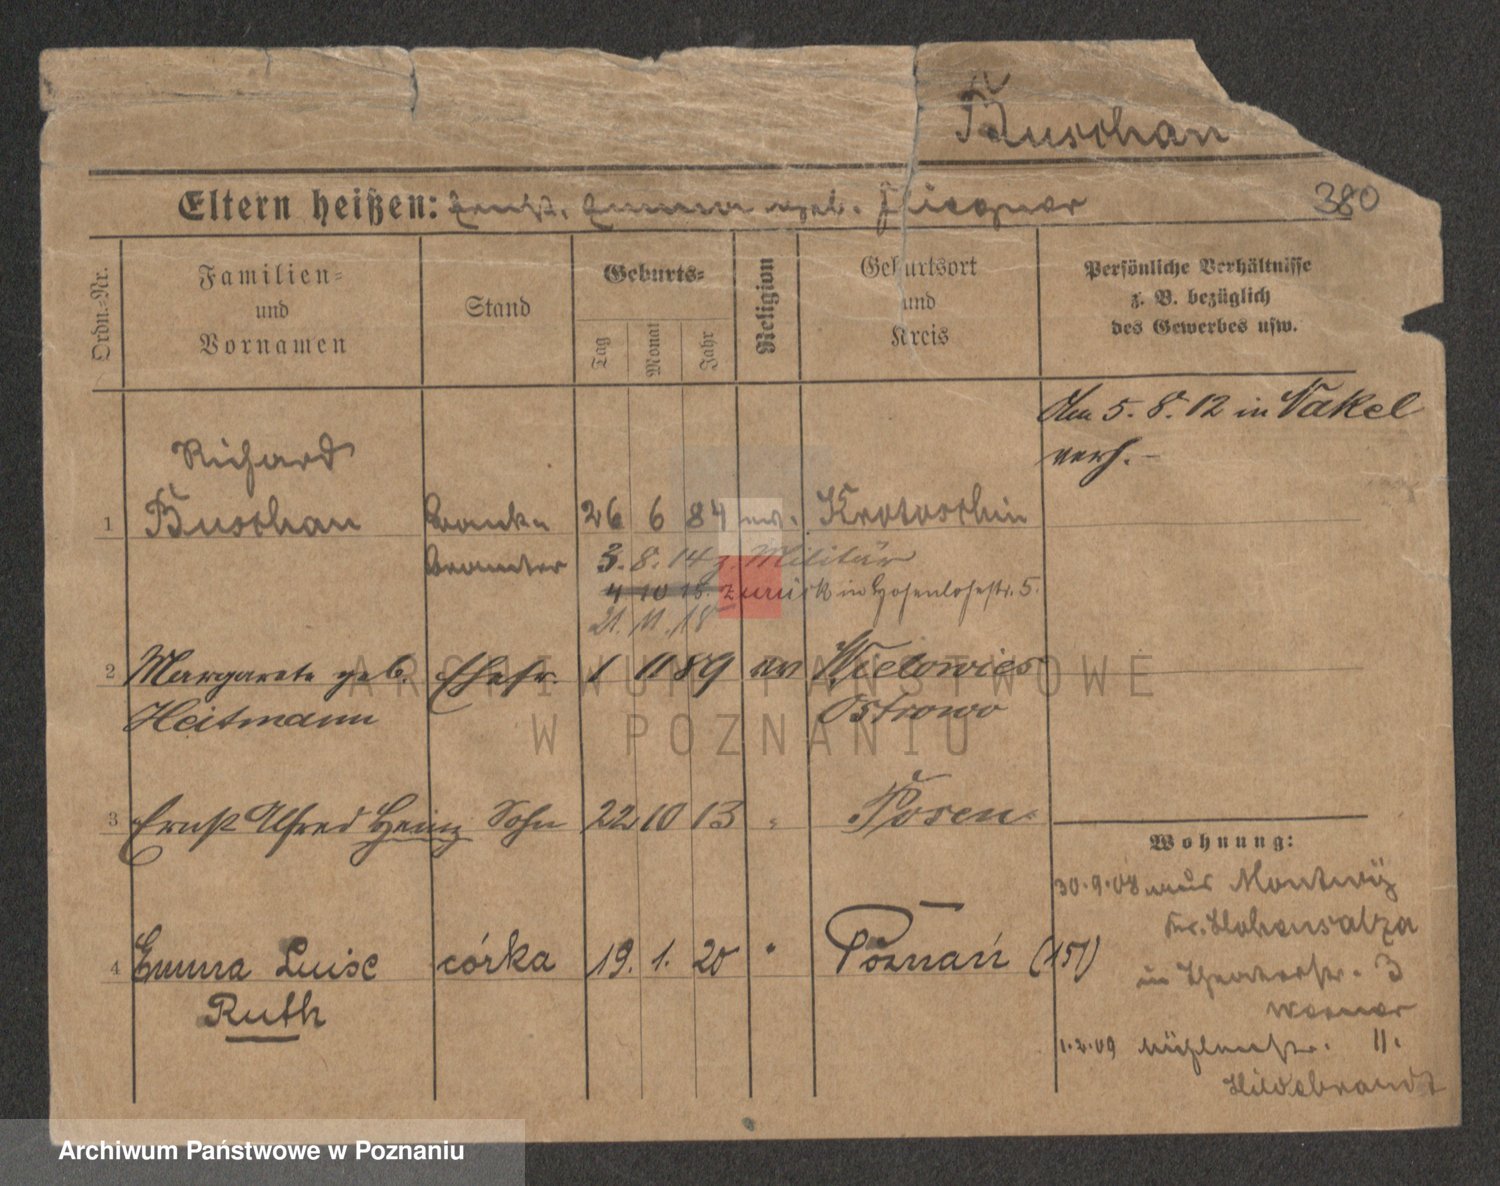 Buschan
Eltern heißen: Ernst, Emma geb.
380
Ordn.-Nr.
Familien-
und
Vornamen
Stand
Geburts-
Tag
Monat
Jahr
Religion
Geburtsort
und
Kreis
Persönliche Verhältnisse
z. B. bezüglich
des Gewerbes usw.
Am 5. 8. 12 in Nakel
verh. –
Richard
1 Buschan Bank- 26 6 84 ev. Krotoschin
beamter 3. 8. 14 z. Militär
4 10 15. zurück in Hohenlohestr. 5.
21. 11. 18
2 Margarete geb. Ehefr. 1 11 89 ev Wielowies
Heitmann Ostrowo
3 Ernst Alfred Heinz Sohn 22 10 13 " Posen
Wohnung:
30.9.08 aus Montwy
Kr. Hohensalza
in Theaterstr. 3
Werner
1.2.09 Mühlenstr. 11.
Hildebrandt
4 Emma Luise córka 19. 1. 20 " Poznań (151)
Ruth
ARCHIWUM PAŃSTWOWE
W POZNANIU
Archiwum Państwowe w Poznaniu